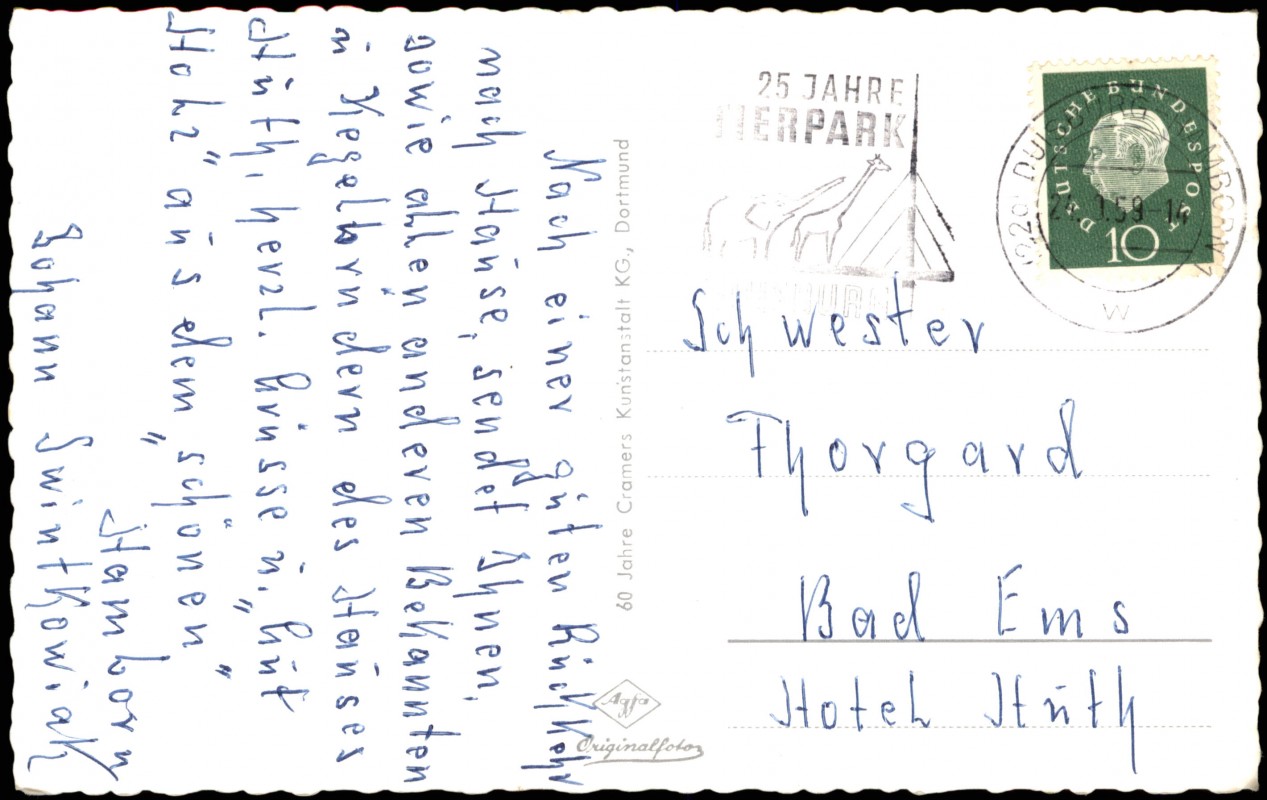 Nach einer guten Rückkehr
nach Hause, sendet Ihnen,
sowie allen anderen Bekannten
u. Kegelbrüdern des Hauses
Hüth, herzl. Grüsse u. „Gut
Holz" aus dem „schönen"
Hamborn
Johann Swintkowiak
60 Jahre Cramers Kunstanstalt KG., Dortmund
Agfa
Originalfoto
25 JAHRE
TIERPARK
DUISBURG
DEUTSCHE BUNDESPOST
10
1.59-14
W
Schwester
Thorgard
Bad Ems
Hotel Hüth